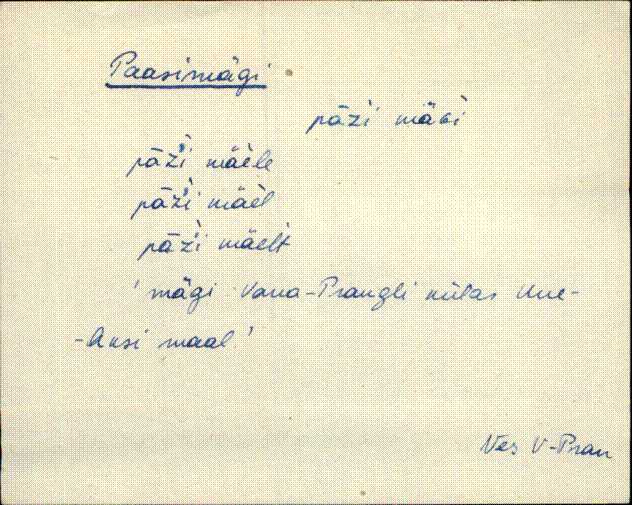 Paasimägi
pāžì mäGi
pāžì mäele
pāžì mäel
pāžì mäelt
'mägi Vana-Prangli külas Uue-
-Aksi maal'
Ves V-Pran